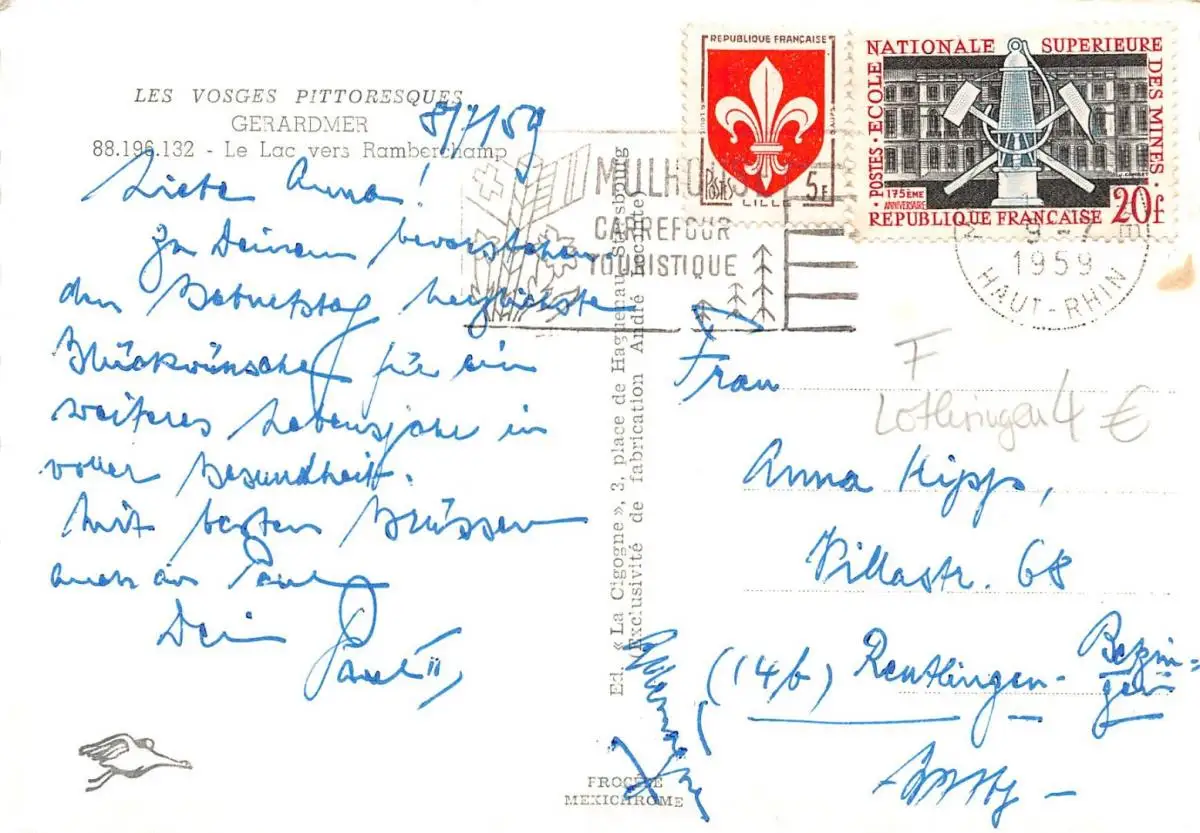 LES VOSGES PITTORESQUES
GERARDMER
88.196.132 - Le Lac vers Ramberchamp
8/7/59
Liebe Anna!
Zu Deinem bevorstehen-
den Geburtstag herzlichste
Glückwünsche für ein
weiteres Lebensjahr in
voller Gesundheit.
Mit besten Grüssen
auch an Paul
Dein
Ed. « La Cigogne », 3, place de Haguenau, Strasbourg
(Exclusivité de fabrication André Leconte)
PROCÉDÉ
MEXICHROME
REPUBLIQUE FRANÇAISE
POSTES
5F
LILLE
ECOLE NATIONALE SUPERIEURE DES MINES
POSTES
175ÈME
ANNIVERSAIRE
20f
REPUBLIQUE FRANÇAISE
MULHOUSE
CARREFOUR
TOURISTIQUE
1959
HAUT-RHIN
F
Lothringen 4 €
Frau
Anna Hipp,
Villastr. 68
(14b) Reutlingen-
Betzin=
gen